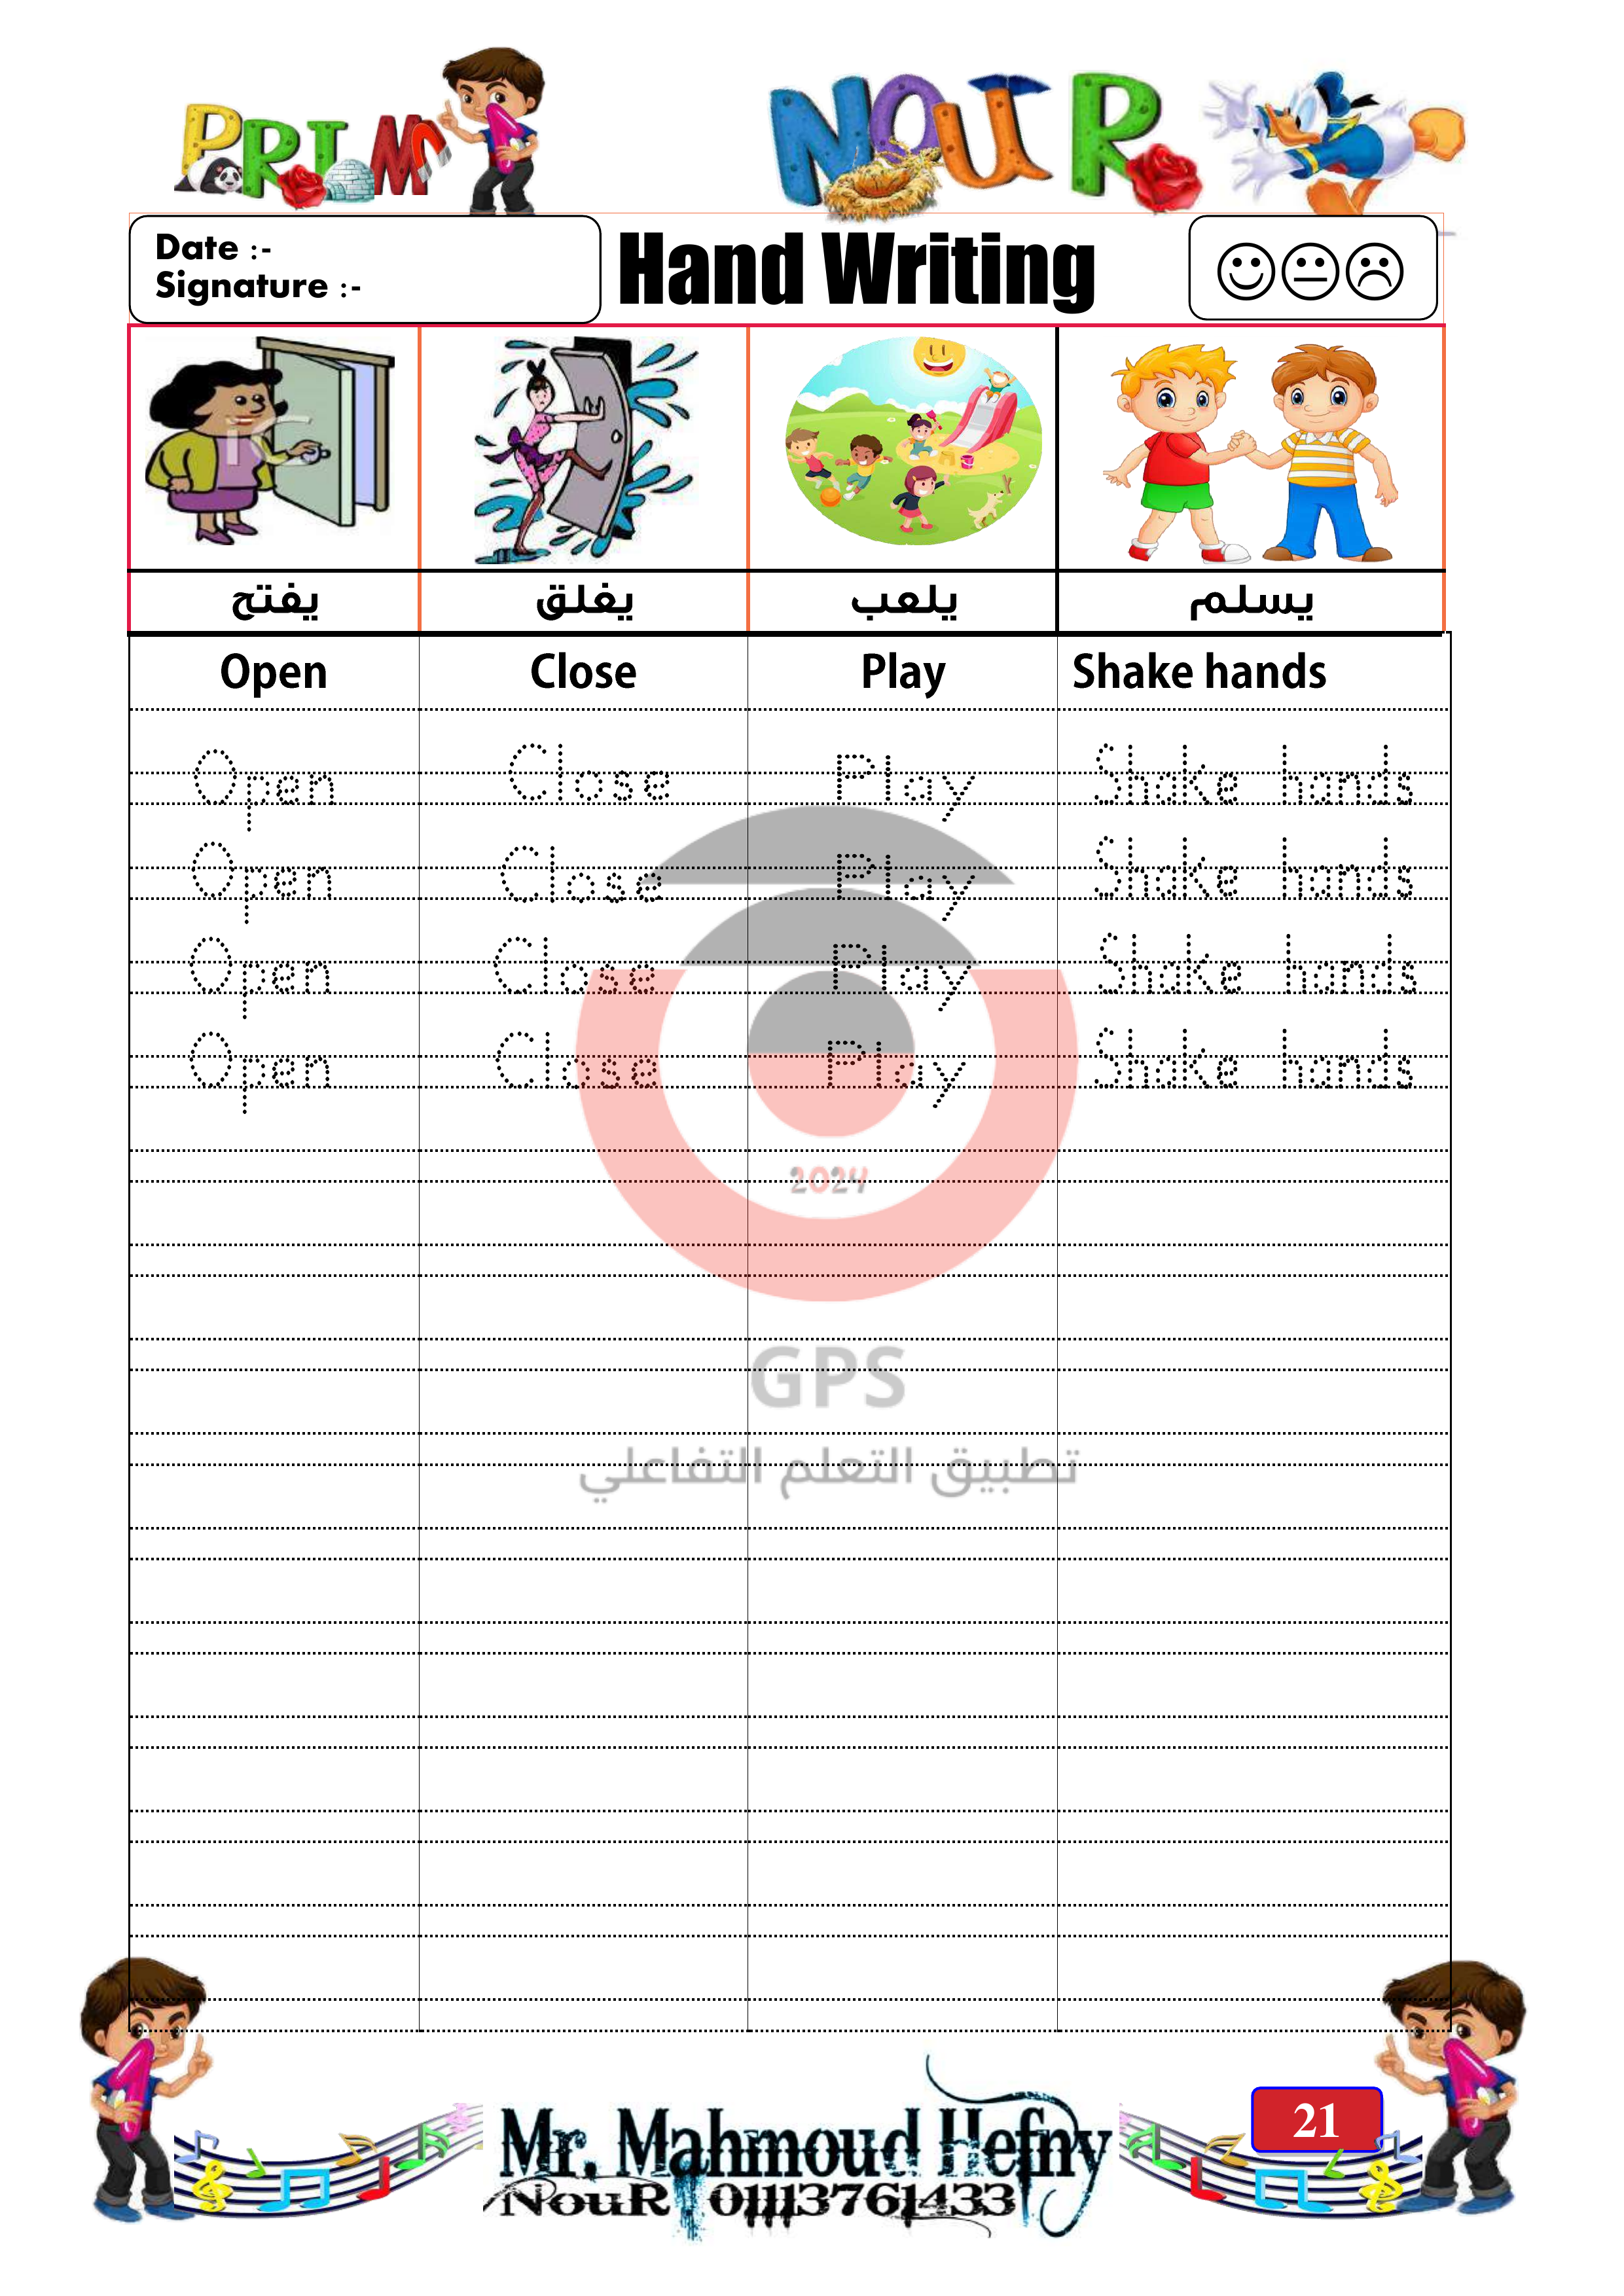 PRIM 1
NOUR
Date :-
Signature :-
Hand Writing
يفتح يغلق يلعب يسلم
Open Close Play Shake hands
Open Close Play Shake hands
Open Close Play Shake hands
Open Close Play Shake hands
Open Close Play Shake hands
2024
GPS
تطبيق التعلم التفاعلي
21
Mr. Mahmoud Hefny
NouR 01113761433